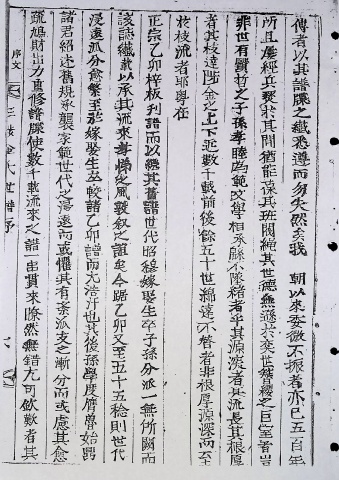 傳者以其譜牒之纖悉遵而勿失然矣我 朝以來委微不振者亦已五百年
所且歷經兵燹於其間猶能葆其班閥繩其世德無遜於奕世簪纓之巨室者豈
非世有賢哲之子孫孝睦為範文學相承餘不隕緒者乎其源深者其流長其根厚
者其枝達隲金之上下近數千載前後餘五十世綿遠不替者非根厚源深而至
於枝流者耶粤在
正宗乙卯梓板刋譜而以繞其舊譜世代昭穆嫁娶生卒子孫分派一無所闕而
該該纖載以承其流來孝悌之風敦叙之誼矣今距乙卯又至五十五稔則世代
浸遠派分愈繁至於嫁娶生卒較諸乙卯譜而尤浩汗也其後孫學度膺魯始問
諸君紹述舊規承襲家範世代之漫遠而或懼其有条派支之漸分而或慮其愈
疏鳩財出力直修譜牒使數千載流來之譜一串貫來瞭然無錯尤可欽歎者其
序文
金氏世譜序